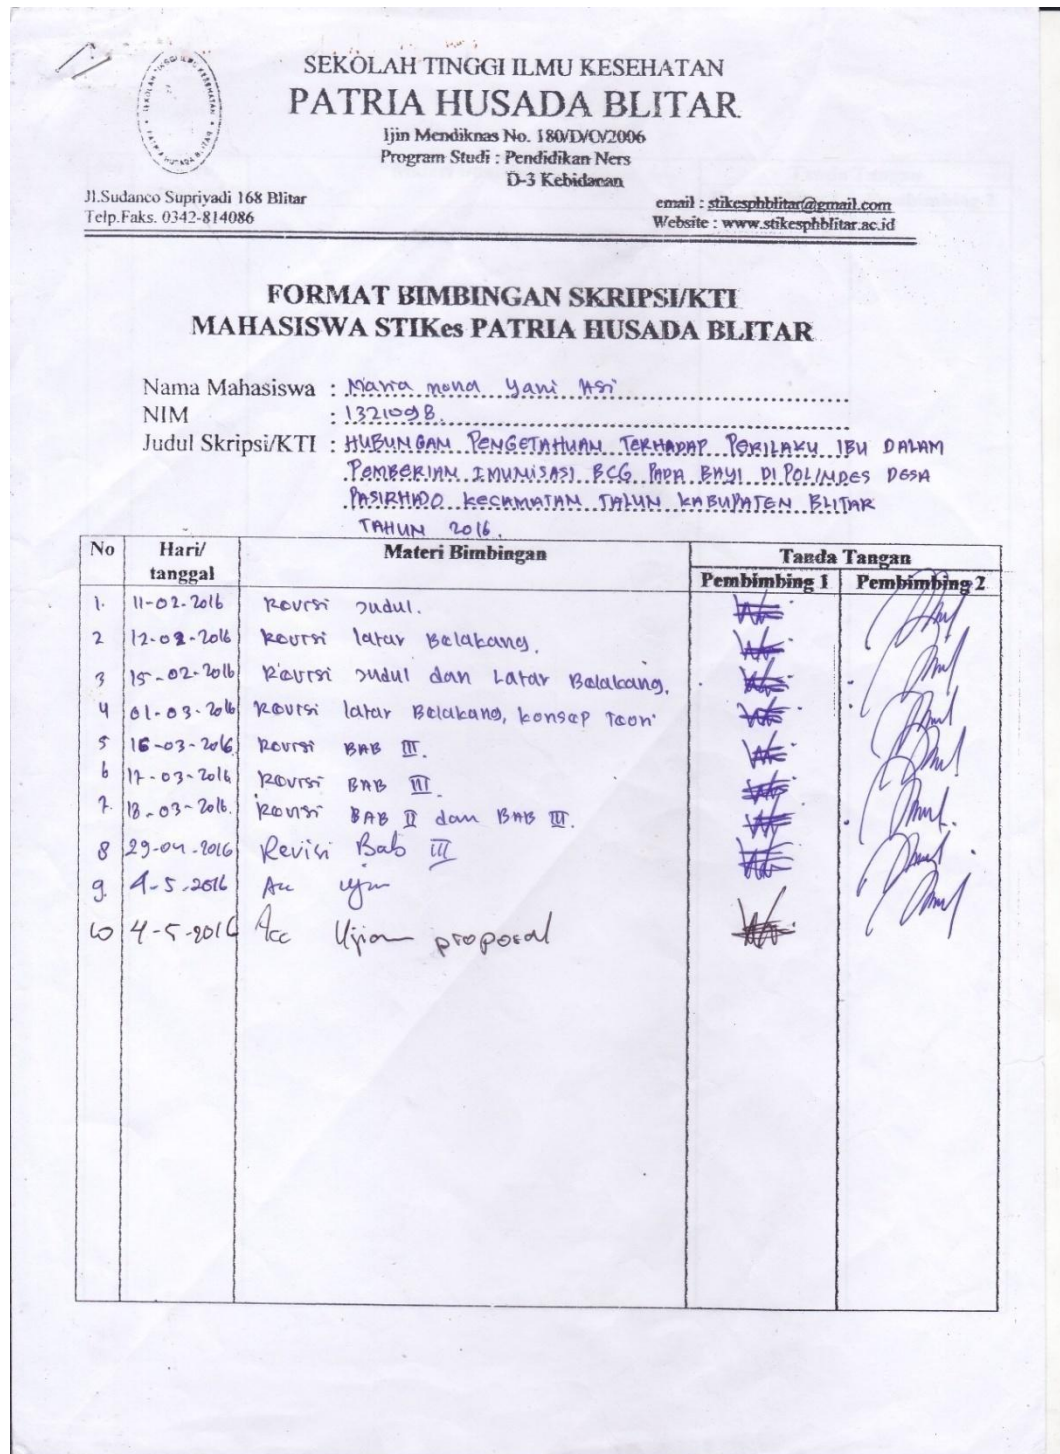 SEKOLAH TINGGI ILMU KESEHATAN
PATRIA HUSADA BLITAR
Ijin Mendiknas No. 180/D/O/2006
Program Studi : Pendidikan Ners
D-3 Kebidanan
Jl.Sudanco Supriyadi 168 Blitar
Telp.Faks. 0342-814086
email : stikesphblitar@gmail.com
Website : www.stikesphblitar.ac.id
FORMAT BIMBINGAN SKRIPSI/KTI
MAHASISWA STIKes PATRIA HUSADA BLITAR
Nama Mahasiswa : Maria mona Yani
NIM : 1321098
Judul Skripsi/KTI : HUBUNGAN PENGETAHUAN TERHADAP PERILAKU IBU DALAM
PEMBERIAN IMUNISASI BCG PADA BAYI DI POLINDES DESA
KECAMATAN TALUN KABUPATEN BLITAR
TAHUN 2016.
No Hari/ tanggal Materi Bimbingan Tanda Tangan
Pembimbing 1 Pembimbing 2
1. 11-02-2016 Revisi Judul.
2 12-02-2016 Revisi latar Belakang.
3 15-02-2016 Revisi Judul dan Latar Belakang.
4 01-03-2016 Revisi latar Belakang, konsep Teori
5 16-03-2016 Revisi BAB III.
6 17-03-2016 Revisi BAB III.
7. 18-03-2016. Revisi BAB II dan BAB III.
8 29-04-2016 Revisi Bab III
9. 4-5-2016 Acc
10 4-5-2016 Acc Ujian proposal